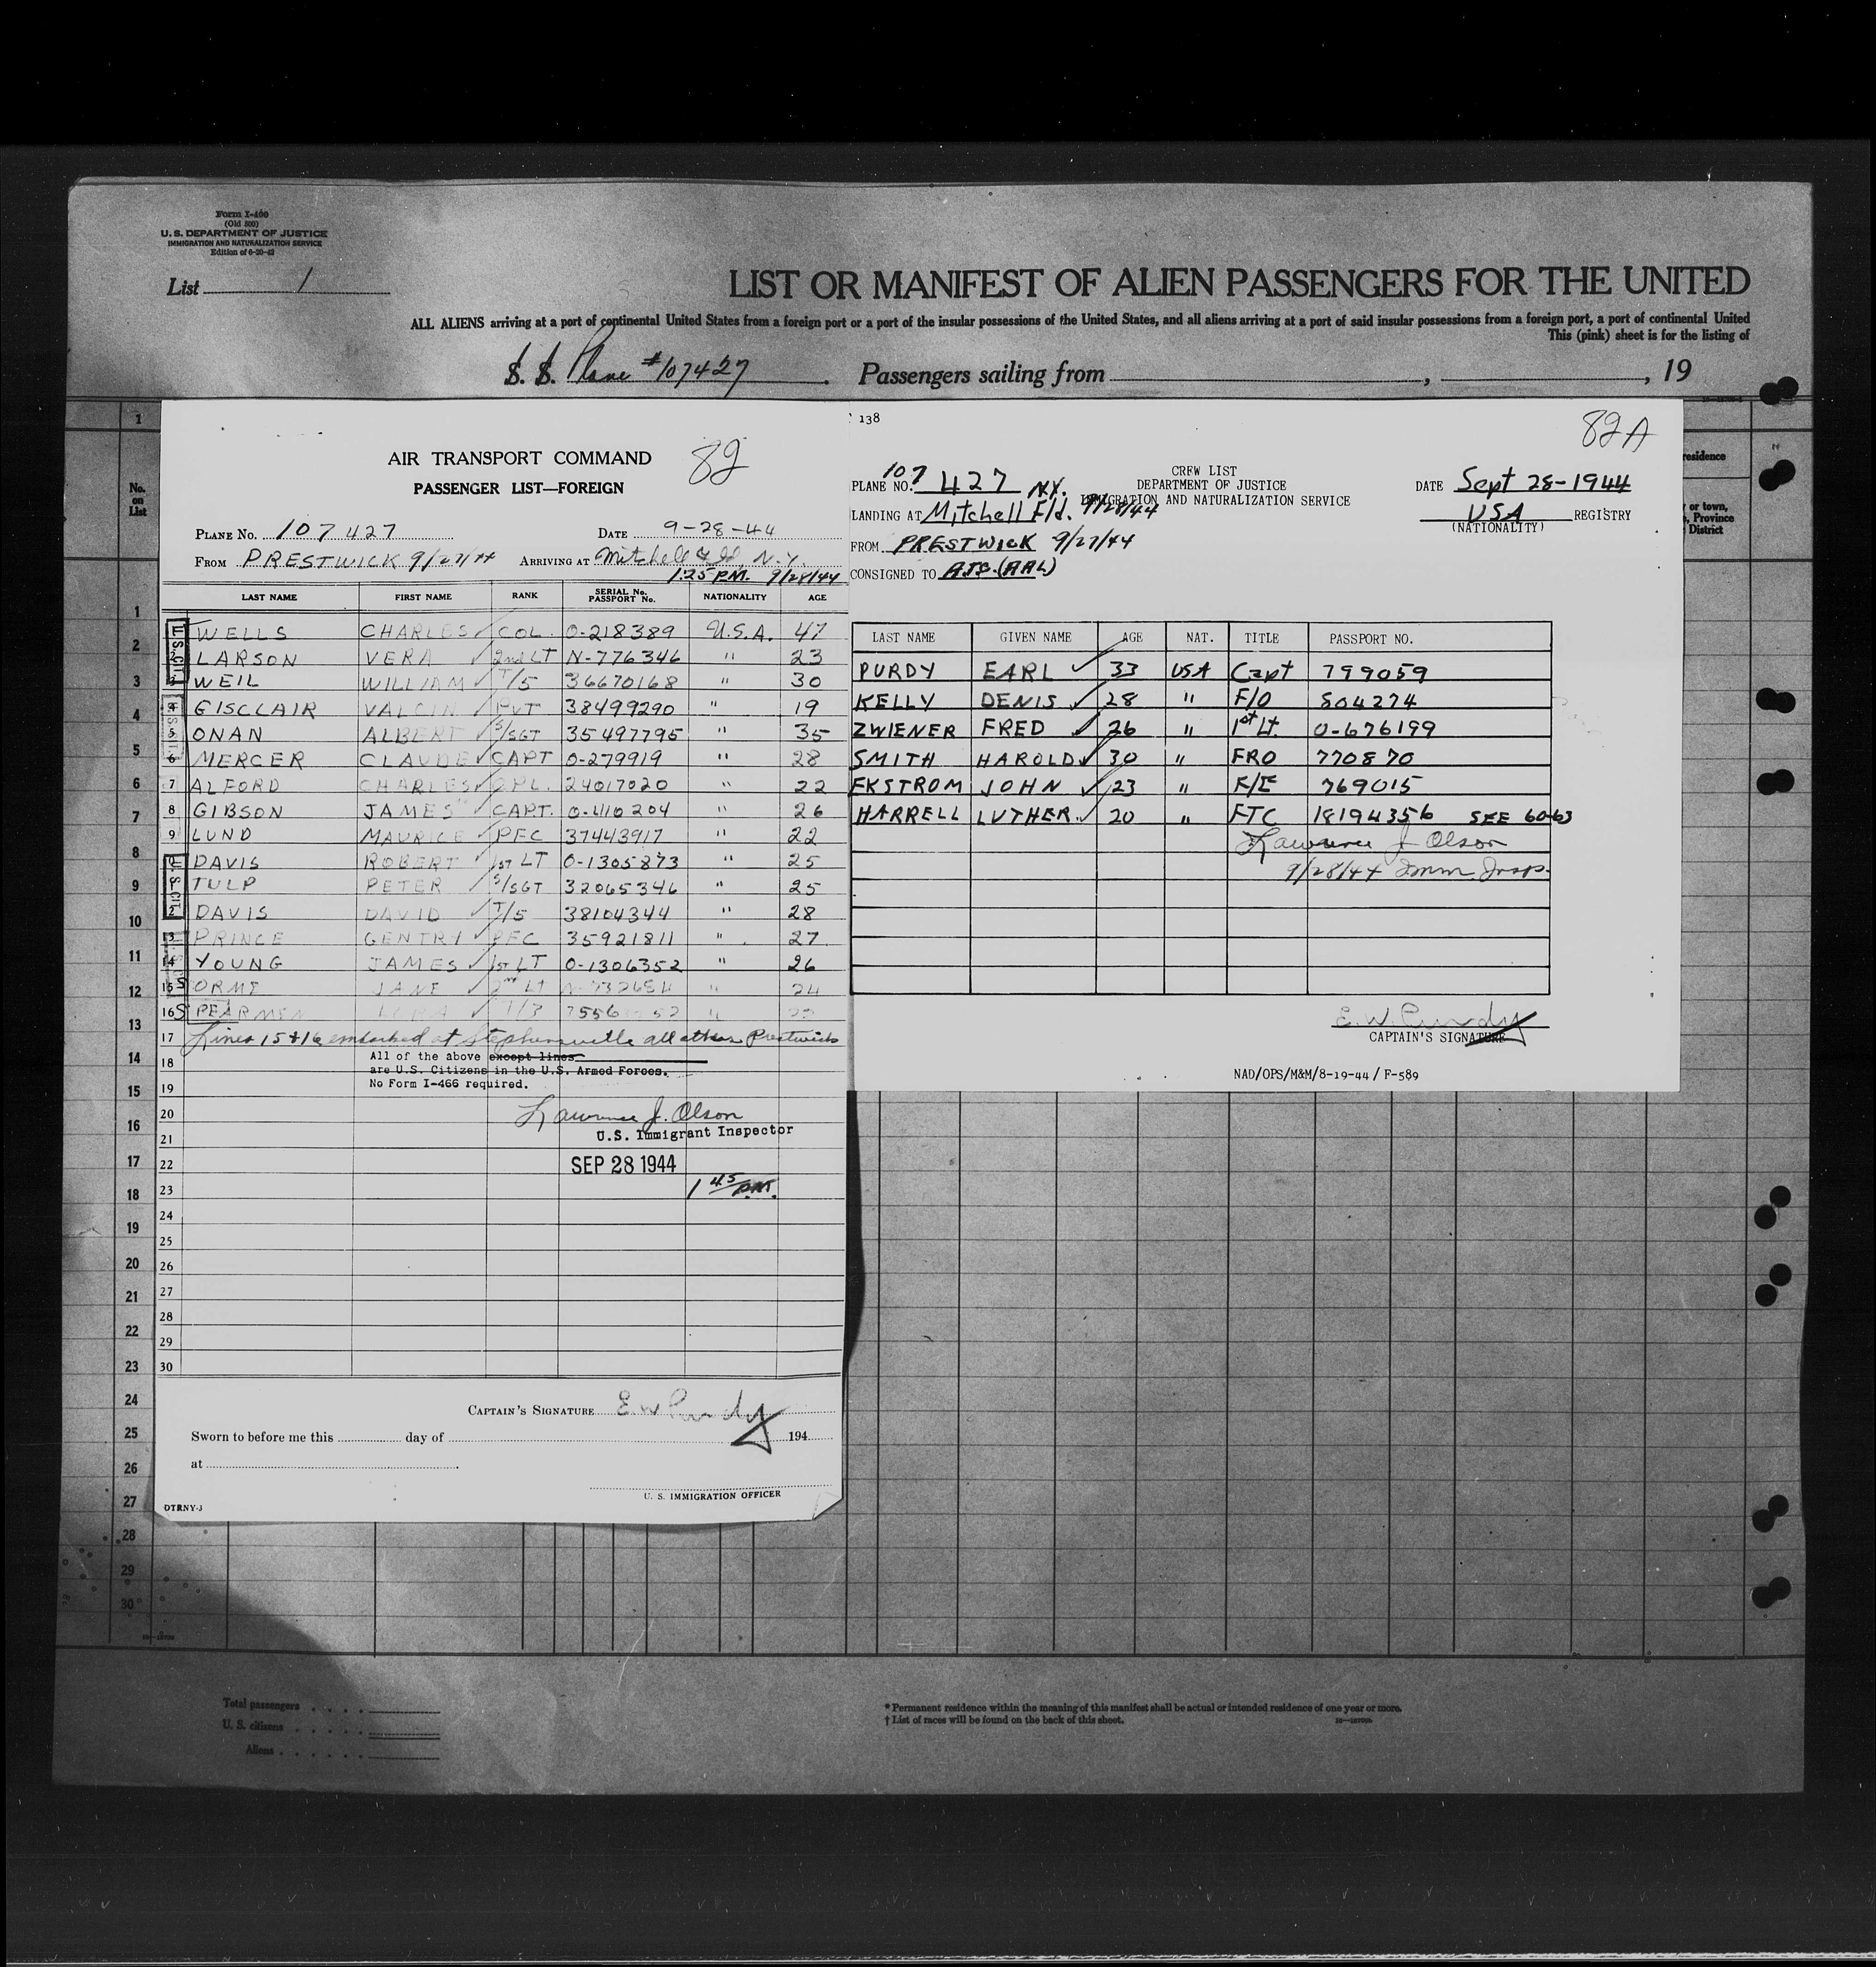 Form I-466
(Old 500)
U. S. DEPARTMENT OF JUSTICE
IMMIGRATION AND NATURALIZATION SERVICE
List 1
LIST OR MANIFEST OF ALIEN PASSENGERS FOR THE UNITED
ALL ALIENS arriving at a port of continental United States from a foreign port or a port of the insular possessions of the United States, and all aliens arriving at a port of said insular possessions from a foreign port, a port of continental United
This (pink) sheet is for the listing of
S. S. Plane #107427. Passengers sailing from , , 19
No. on List
AIR TRANSPORT COMMAND 82
PASSENGER LIST—FOREIGN
PLANE No. 107427 DATE 9-28-44
FROM PRESTWICK 9/27/44 ARRIVING AT Mitchell Fld, N.Y.
1:25 P.M. 9/28/44
LAST NAME FIRST NAME RANK SERIAL No. PASSPORT No. NATIONALITY AGE
WELLS CHARLES ✓ COL. O-218389 U.S.A. 47
LARSON VERA ✓ 2nd LT N-776346 " 23
WEIL WILLIAM ✓ T/5 36670168 " 30
4 GISCLAIR VALCIN ✓ PVT 38499290 " 19
5 ONAN ALBERT ✓ S/SGT 35497795 " 35
6 MERCER CLAUDE ✓ CAPT O-279919 " 28
7 ALFORD CHARLES ✓ CPL. 24017020 " 22
8 GIBSON JAMES ✓ CAPT. O-410204 " 26
9 LUND MAURICE ✓ PFC 37443917 " 22
DAVIS ROBERT ✓ 1ST LT O-1305873 " 25
TULP PETER ✓ S/SGT 32065346 " 25
DAVIS DAVID ✓ T/5 38104344 " 28
13 PRINCE GENTRY ✓ PFC 35921811 " 27
14 YOUNG JAMES ✓ 1ST LT O-1306352 " 26
15 S ORME JANE ✓ 2nd LT " 24
16 S PEARMEN ✓ T/3 "
17 Lines 15 & 16 embarked at Stephenville all others Prestwick
18 All of the above except lines
are U.S. Citizens in the U.S. Armed Forces.
19 No Form I-466 required.
20 Lawrence J. Olson
21 U.S. Immigrant Inspector
22 SEP 28 1944
23 1 45 P.M.
24
25
26
27
28
29
30
CAPTAIN'S SIGNATURE E.W. Purdy
Sworn to before me this day of 194
at
U. S. IMMIGRATION OFFICER
DTRNY-3
138
82A
CREW LIST
DEPARTMENT OF JUSTICE
IMMIGRATION AND NATURALIZATION SERVICE
PLANE NO. 107427 N.Y. DATE Sept 28-1944
LANDING AT Mitchell Fld. 9/28/44 USA REGISTRY
(NATIONALITY)
FROM PRESTWICK 9/27/44
CONSIGNED TO A.T.C. (AAL)
LAST NAME GIVEN NAME AGE NAT. TITLE PASSPORT NO.
PURDY EARL ✓ 33 USA Capt 799059
KELLY DENIS ✓ 28 " F/O 504274
ZWIENER FRED ✓ 26 " 1st Lt. O-676199
SMITH HAROLD ✓ 30 " FRO 770870
EKSTROM JOHN ✓ 23 " F/E 769015
HARRELL LUTHER ✓ 20 " FTC 18194356 SEE 60-63
Lawrence J Olson
9/28/44 Imm Insp.
E.W. Purdy
CAPTAIN'S SIGNATURE
NAD/OPS/M&M/8-19-44 / F-589
residence
or town,
, Province
District
1
1
2
3
4
5
6
7
8
9
10
11
12
13
14
15
16
17
18
19
20
21
22
23
24
25
26
27
28
29
30
Total passengers
U. S. citizens
Aliens
* Permanent residence within the meaning of this manifest shall be actual or intended residence of one year or more.
† List of races will be found on the back of this sheet.